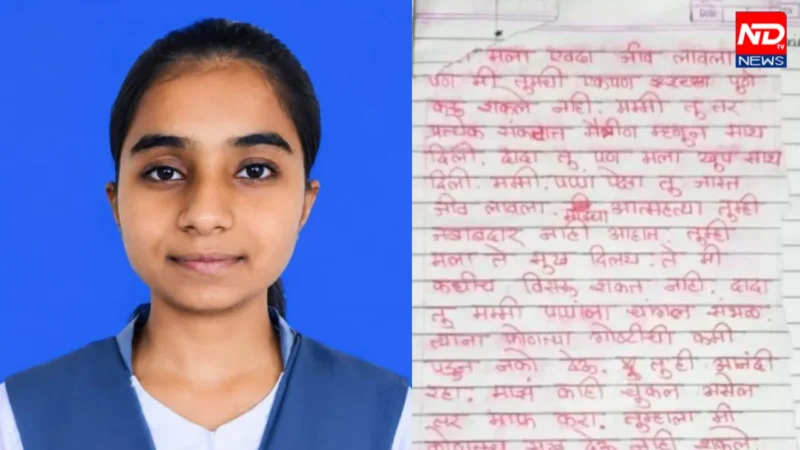 ND
TV
NEWS
मला एवढा जीव लावला
पण मी तुमची एकपण पुर्ण
करू शकले नाही. मम्मी तु तर
प्रत्येक संकटात मैत्रीण म्हणुन साथ
दिली. दादा तु पण मला खुप साथ
दिली. मम्मी. पप्पा पेक्षा तु जास्त
जीव लावला. माझ्या आत्महत्या तुम्ही
जबाबदार नाही आहात. तुम्ही
मला ते सुख दिलय. ते मी
कधीच विसरू शकत नाही. दादा
तु मम्मी पप्पांला चांगल संभळ.
त्याना कोणत्या गोष्टीची कमी
पडुन नको देऊ. तु ही आनंदी
रहा. माझं काही चुकल असेल
तर माफ करा. तुम्हाला मी
सुख देऊ नाही शकले.